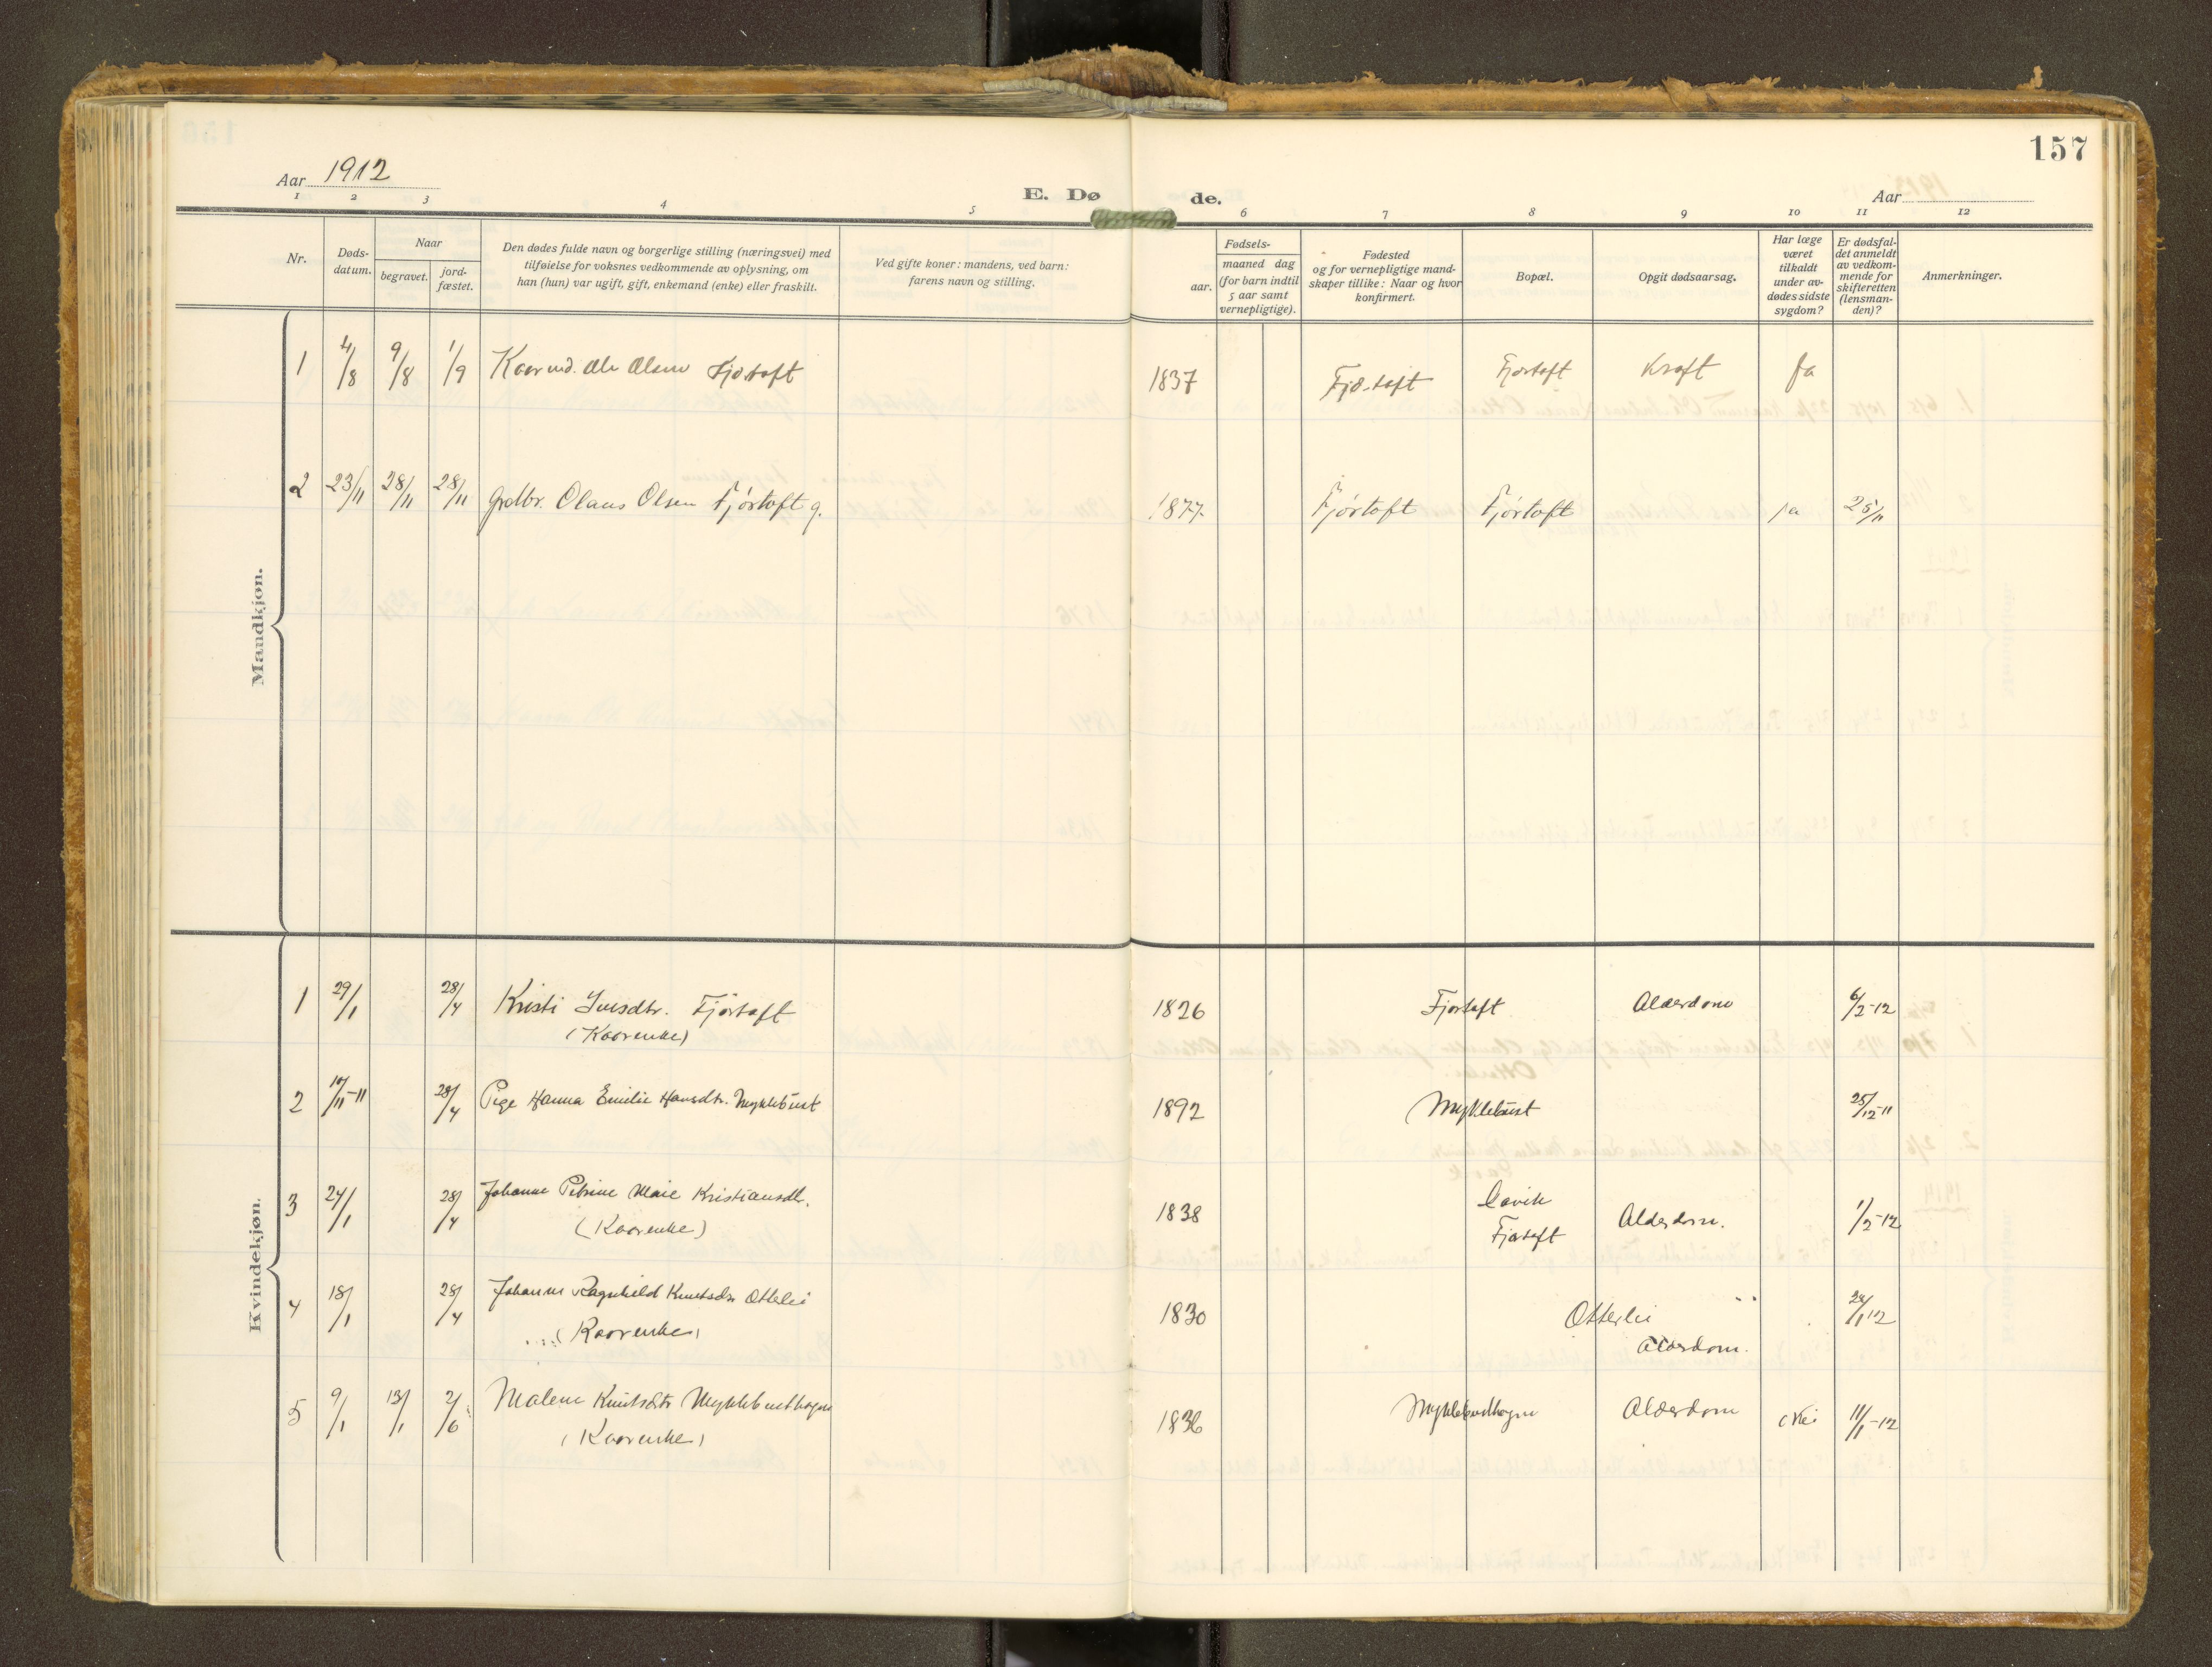 157
Aar 1912
E. Dø de.
Aar
1 2 3 4 5 6 7 8 9 10 11 12
Nr.
Døds-
datum.
Naar
begravet.
jord-
fæstet.
Den dødes fulde navn og borgerlige stilling (næringsvei) med
tilføielse for voksnes vedkommende av oplysning, om
han (hun) var ugift, gift, enkemand (enke) eller fraskilt.
Ved gifte koner: mandens, ved barn:
farens navn og stilling.
Fødsels-
aar.
maaned dag
(for barn indtil
5 aar samt
vernepligtige).
Fødested
og for vernepligtige mand-
skaper tillike: Naar og hvor
konfirmert.
Bopæl.
Opgit dødsaarsag.
Har læge
været
tilkaldt
under av-
dødes sidste
sygdom?
Er dødsfal-
det anmeldt
av vedkom-
mende for
skifteretten
(lensman-
den)?
Anmerkninger.
Mandkjøn.
1 4/8 9/8 1/9 Kaarmd. Ole Olsen Fjørtoft 1837 Fjørtoft Fjørtoft Kræft Ja
2 23/11 28/11 28/11 Grdbr. Olaus Olsen Fjørtoft g. 1877 Fjørtoft Fjørtoft ja 25/11
Kvindekjøn.
1 29/1 28/4 Kristi Iversdtr. Fjørtoft 1826 Fjørtoft Alderdom 6/2-12
(Kaarenke)
2 -11 28/4 Pige Hanna Emilie Hansdtr. Myklebust 1892 Myklebust 25/12-11
3 24/1 28/4 Johanne Petrine Marie Kristiansdtr. 1838 Davik
Fjørtoft Alderdom. 1/2-12
(Kaarenke)
4 18/1 28/4 Johanne Ragnhild Knutsdtr Otterlei 1830 Otterlei 12
(Kaarenke) Alderdom.
5 9/1 13/1 2/6 Malene Knutsdtr Myklebusthagen 1836 Myklebusthagen Alderdom Nei 11/1-12
(Kaarenke)